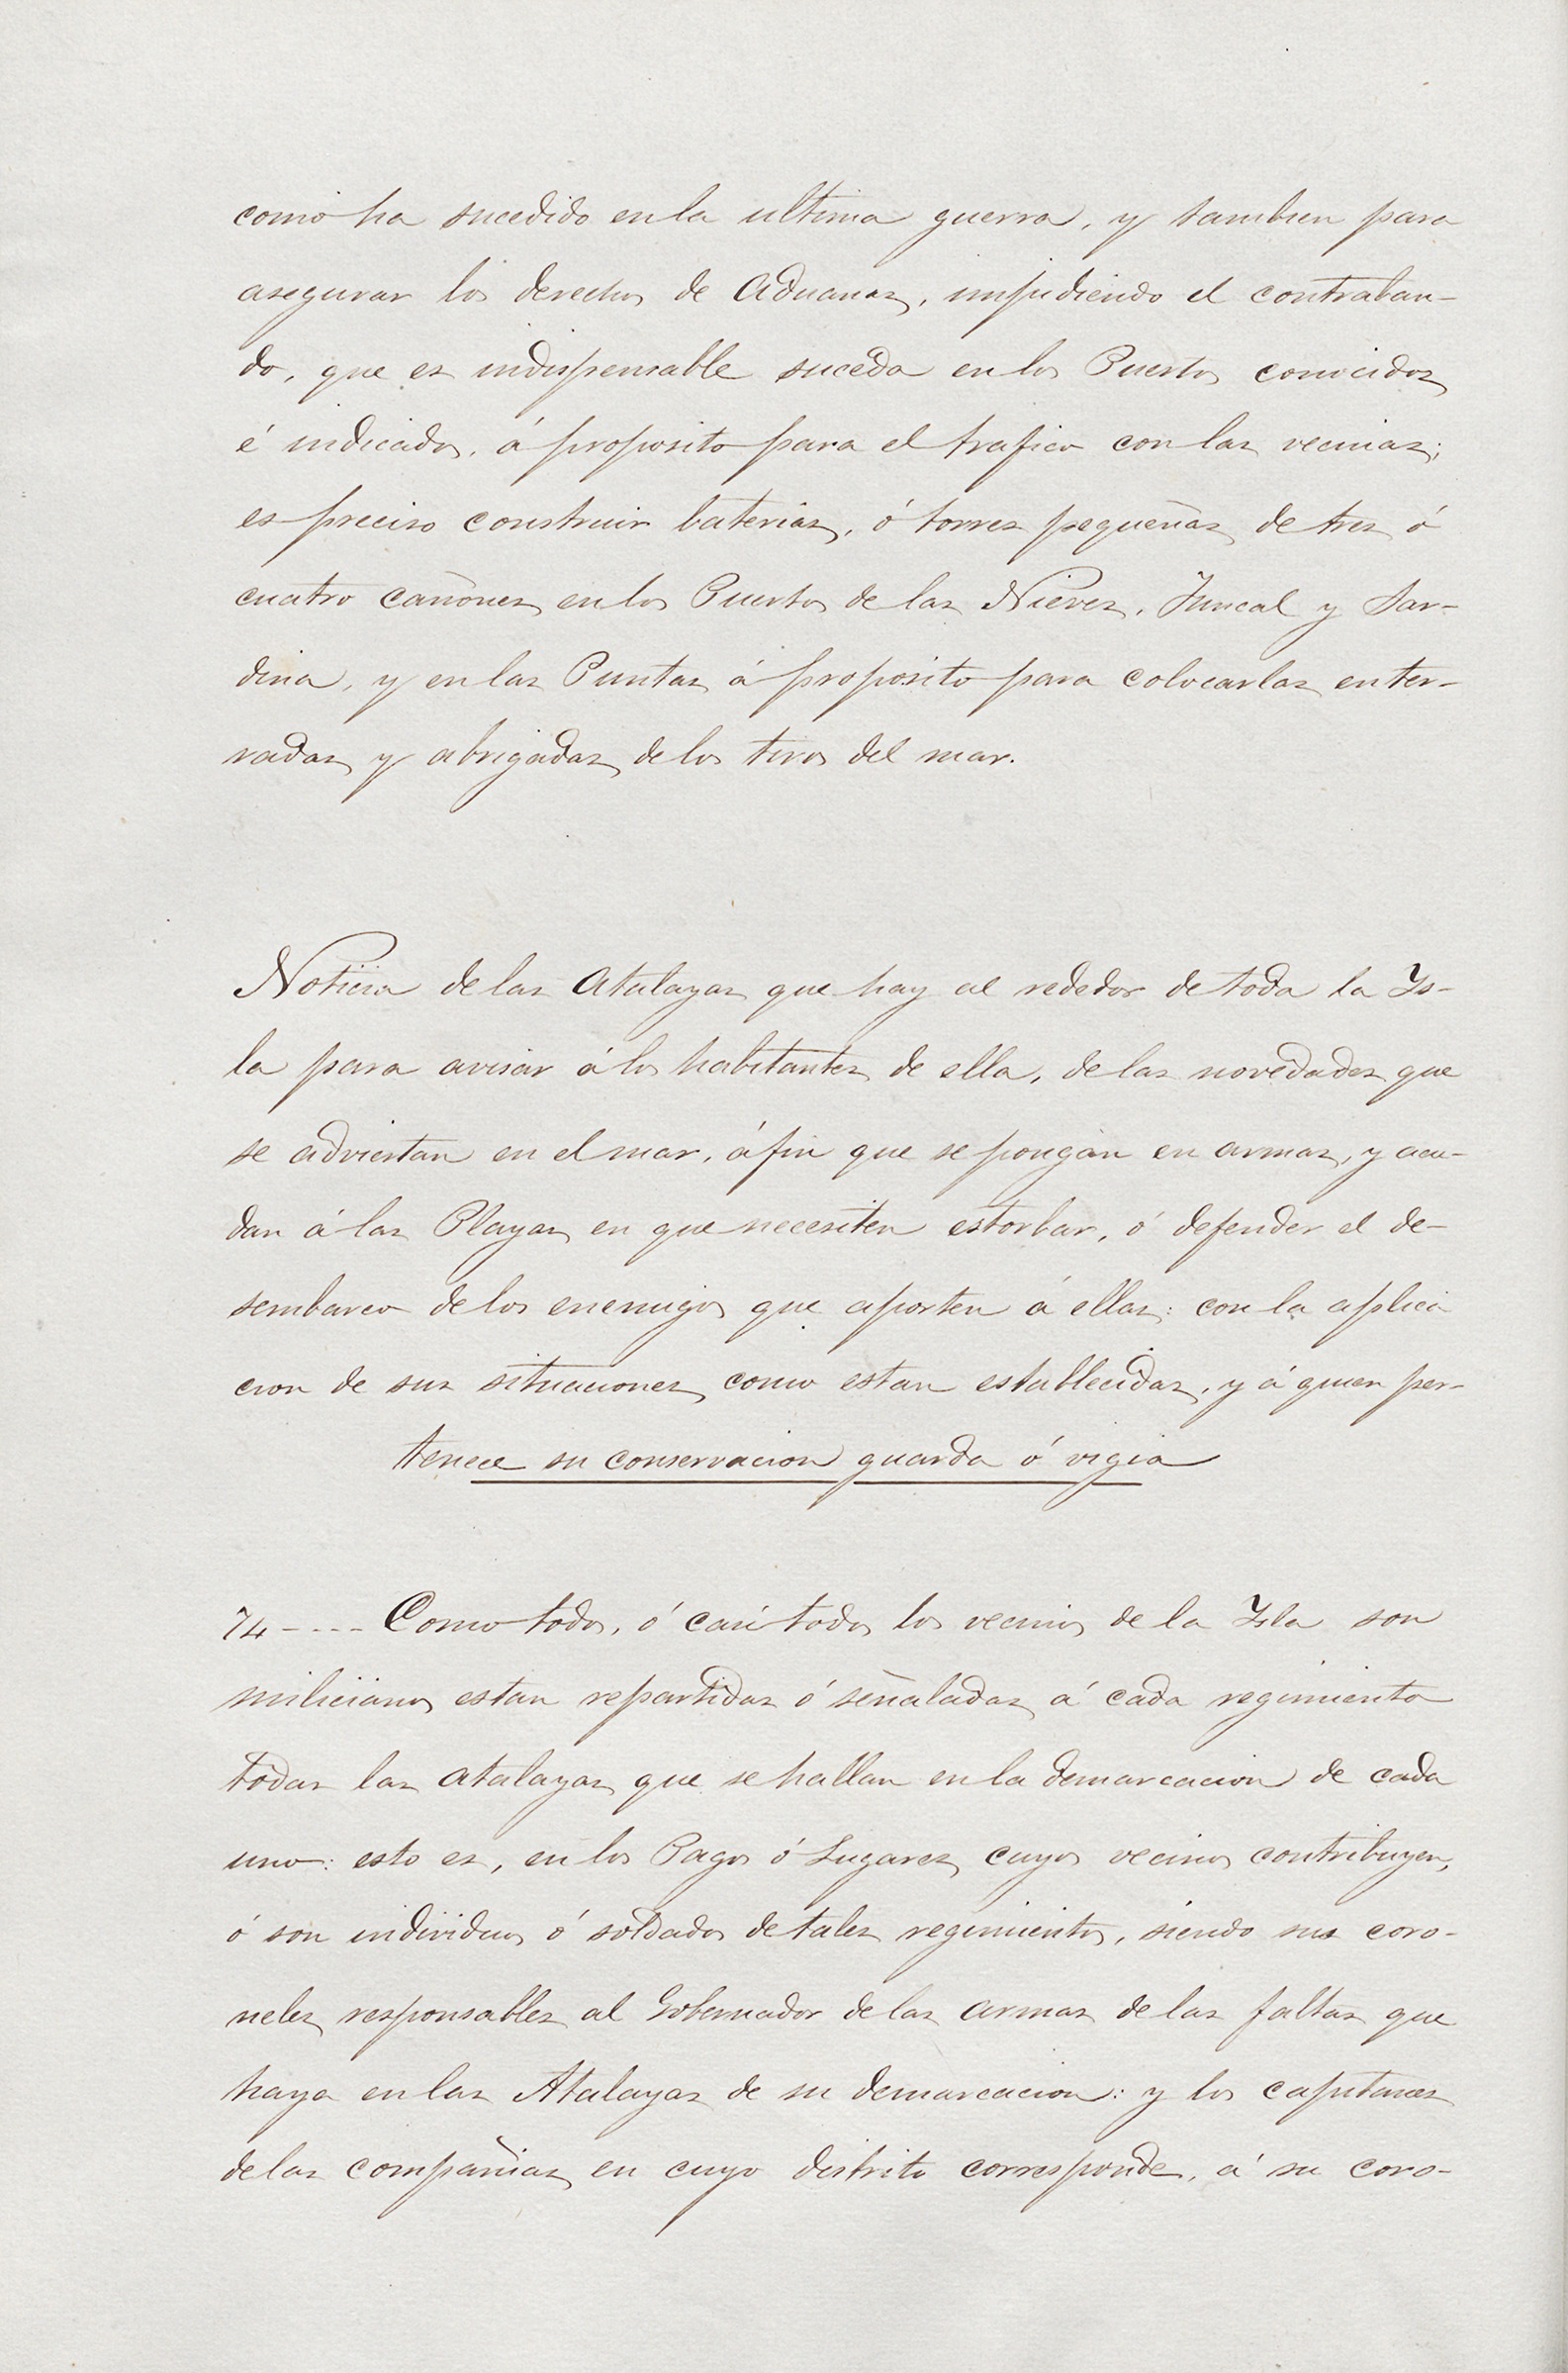 como ha sucedido en la ultima guerra, y tambien para
asegurar los derechos de Aduanas, impidiendo el contraban-
do, que es indispensable suceda en los Puertos conocidos
é indicados, á proposito para el trafico con las vecinas;
es preciso construir baterias, ó torres pequeñas de tres ó
cuatro cañones en los Puertos de las Nieves, Juncal y Sar-
dina, y en las Puntas á proposito para colocarlas enter-
radas y abrigadas de los tiros del mar.
Noticia de las Atalayas que hay al rededor de toda la Ys-
la para avisar á los habitantes de ella, de las novedades que
se adviertan en el mar, á fin que se pongan en armas, y acu-
dan á las Playas en que necesiten estorbar, ó defender el de-
sembarco de los enemigos que aporten á ellas: con la aplica
cion de sus situaciones como estan establecidas, y á quien per-
tenece su conservacion guarda ó vigia
74---- Como todos, ó casi todos los vecinos de la Ysla son
milicianos estan repartidas ó señaladas á cada regimiento
todas las atalayas que se hallan en la demarcacion de cada
uno: esto es, en los Pagos ó Lugares cuyos vecinos contribuyen,
ó son individuos ó soldados de tales regimientos, siendo sus coro-
neles responsables al Gobernador de las armas de las faltas que
haya en las Atalayas de su demarcacion: y los capitanes
de las compañias en cuyo distrito corresponde, á su coro-